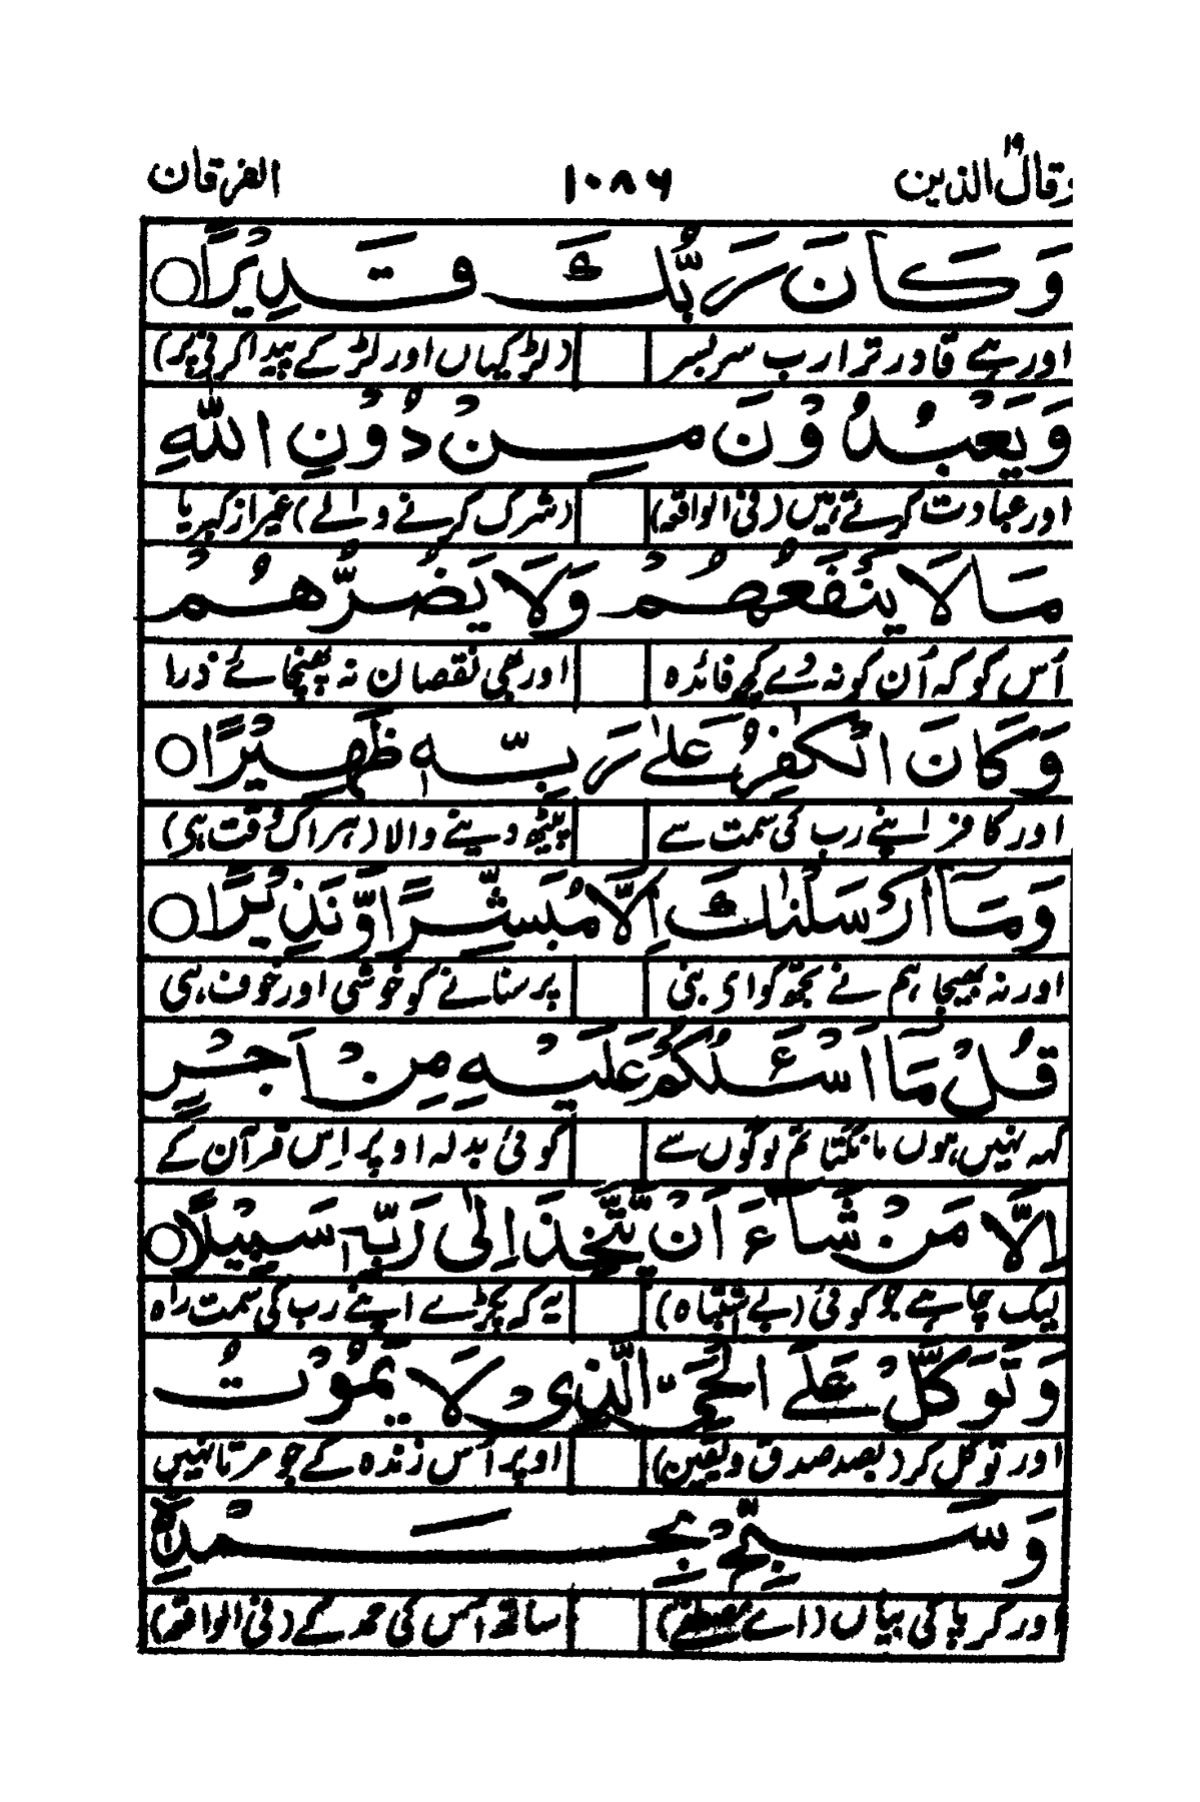 وقال الذین ۱۹ ۱۰۸۶ الفرقان
وَكَانَ رَبُّكَ قَدِيْرًا ○
اور ہے قادر ترا رب سربسر (لڑکیاں اور لڑکے پیدا کرنے پر)
وَيَعْبُدُوْنَ مِنْ دُوْنِ اللّٰهِ
اور عبادت کرتے ہیں (فی الواقعہ) (شرک کرنے والے) غیر از کبریا
مَا لَا يَنْفَعُهُمْ وَلَا يَضُرُّهُمْ
اُس کو کہ اُن کو نہ دے کچھ فائدہ اور بھی نقصان نہ پہنچائے ذرا
وَكَانَ الْكٰفِرُ عَلٰى رَبِّهٖ ظَهِيْرًا ○
اور کافر اپنے رب کی سمت سے پیٹھ دینے والا (ہر اک وقت ہی)
وَمَآ اَرْسَلْنٰكَ اِلَّا مُبَشِّرًا وَّنَذِيْرًا ○
اور نہ بھیجا ہم نے تجھ کو اے نبی پر سنانے کو خوشی اور خوف ہی
قُلْ مَآ اَسْئَلُكُمْ عَلَيْهِ مِنْ اَجْرٍ
کہہ نہیں ہوں مانگتا تم لوگوں سے کوئی بدلہ اوپر اِس قرآن کے
اِلَّا مَنْ شَآءَ اَنْ يَّتَّخِذَ اِلٰى رَبِّهٖ سَبِيْلًا ○
لیک چاہے جو کوئی (بے اشتباہ) یہ کہ پکڑے اپنے رب کی سمت راہ
وَتَوَكَّلْ عَلَى الْحَيِّ الَّذِيْ لَا يَمُوْتُ
اور توکل کر (بصد صدق و یقین) اوپر اُس زندہ کے جو مرتا نہیں
وَسَبِّحْ بِحَمْدِهٖ
اور کر پاکی بیاں (اے مصطفےٰ) ساتھ اس کی حمد کے (فی الواقعہ)